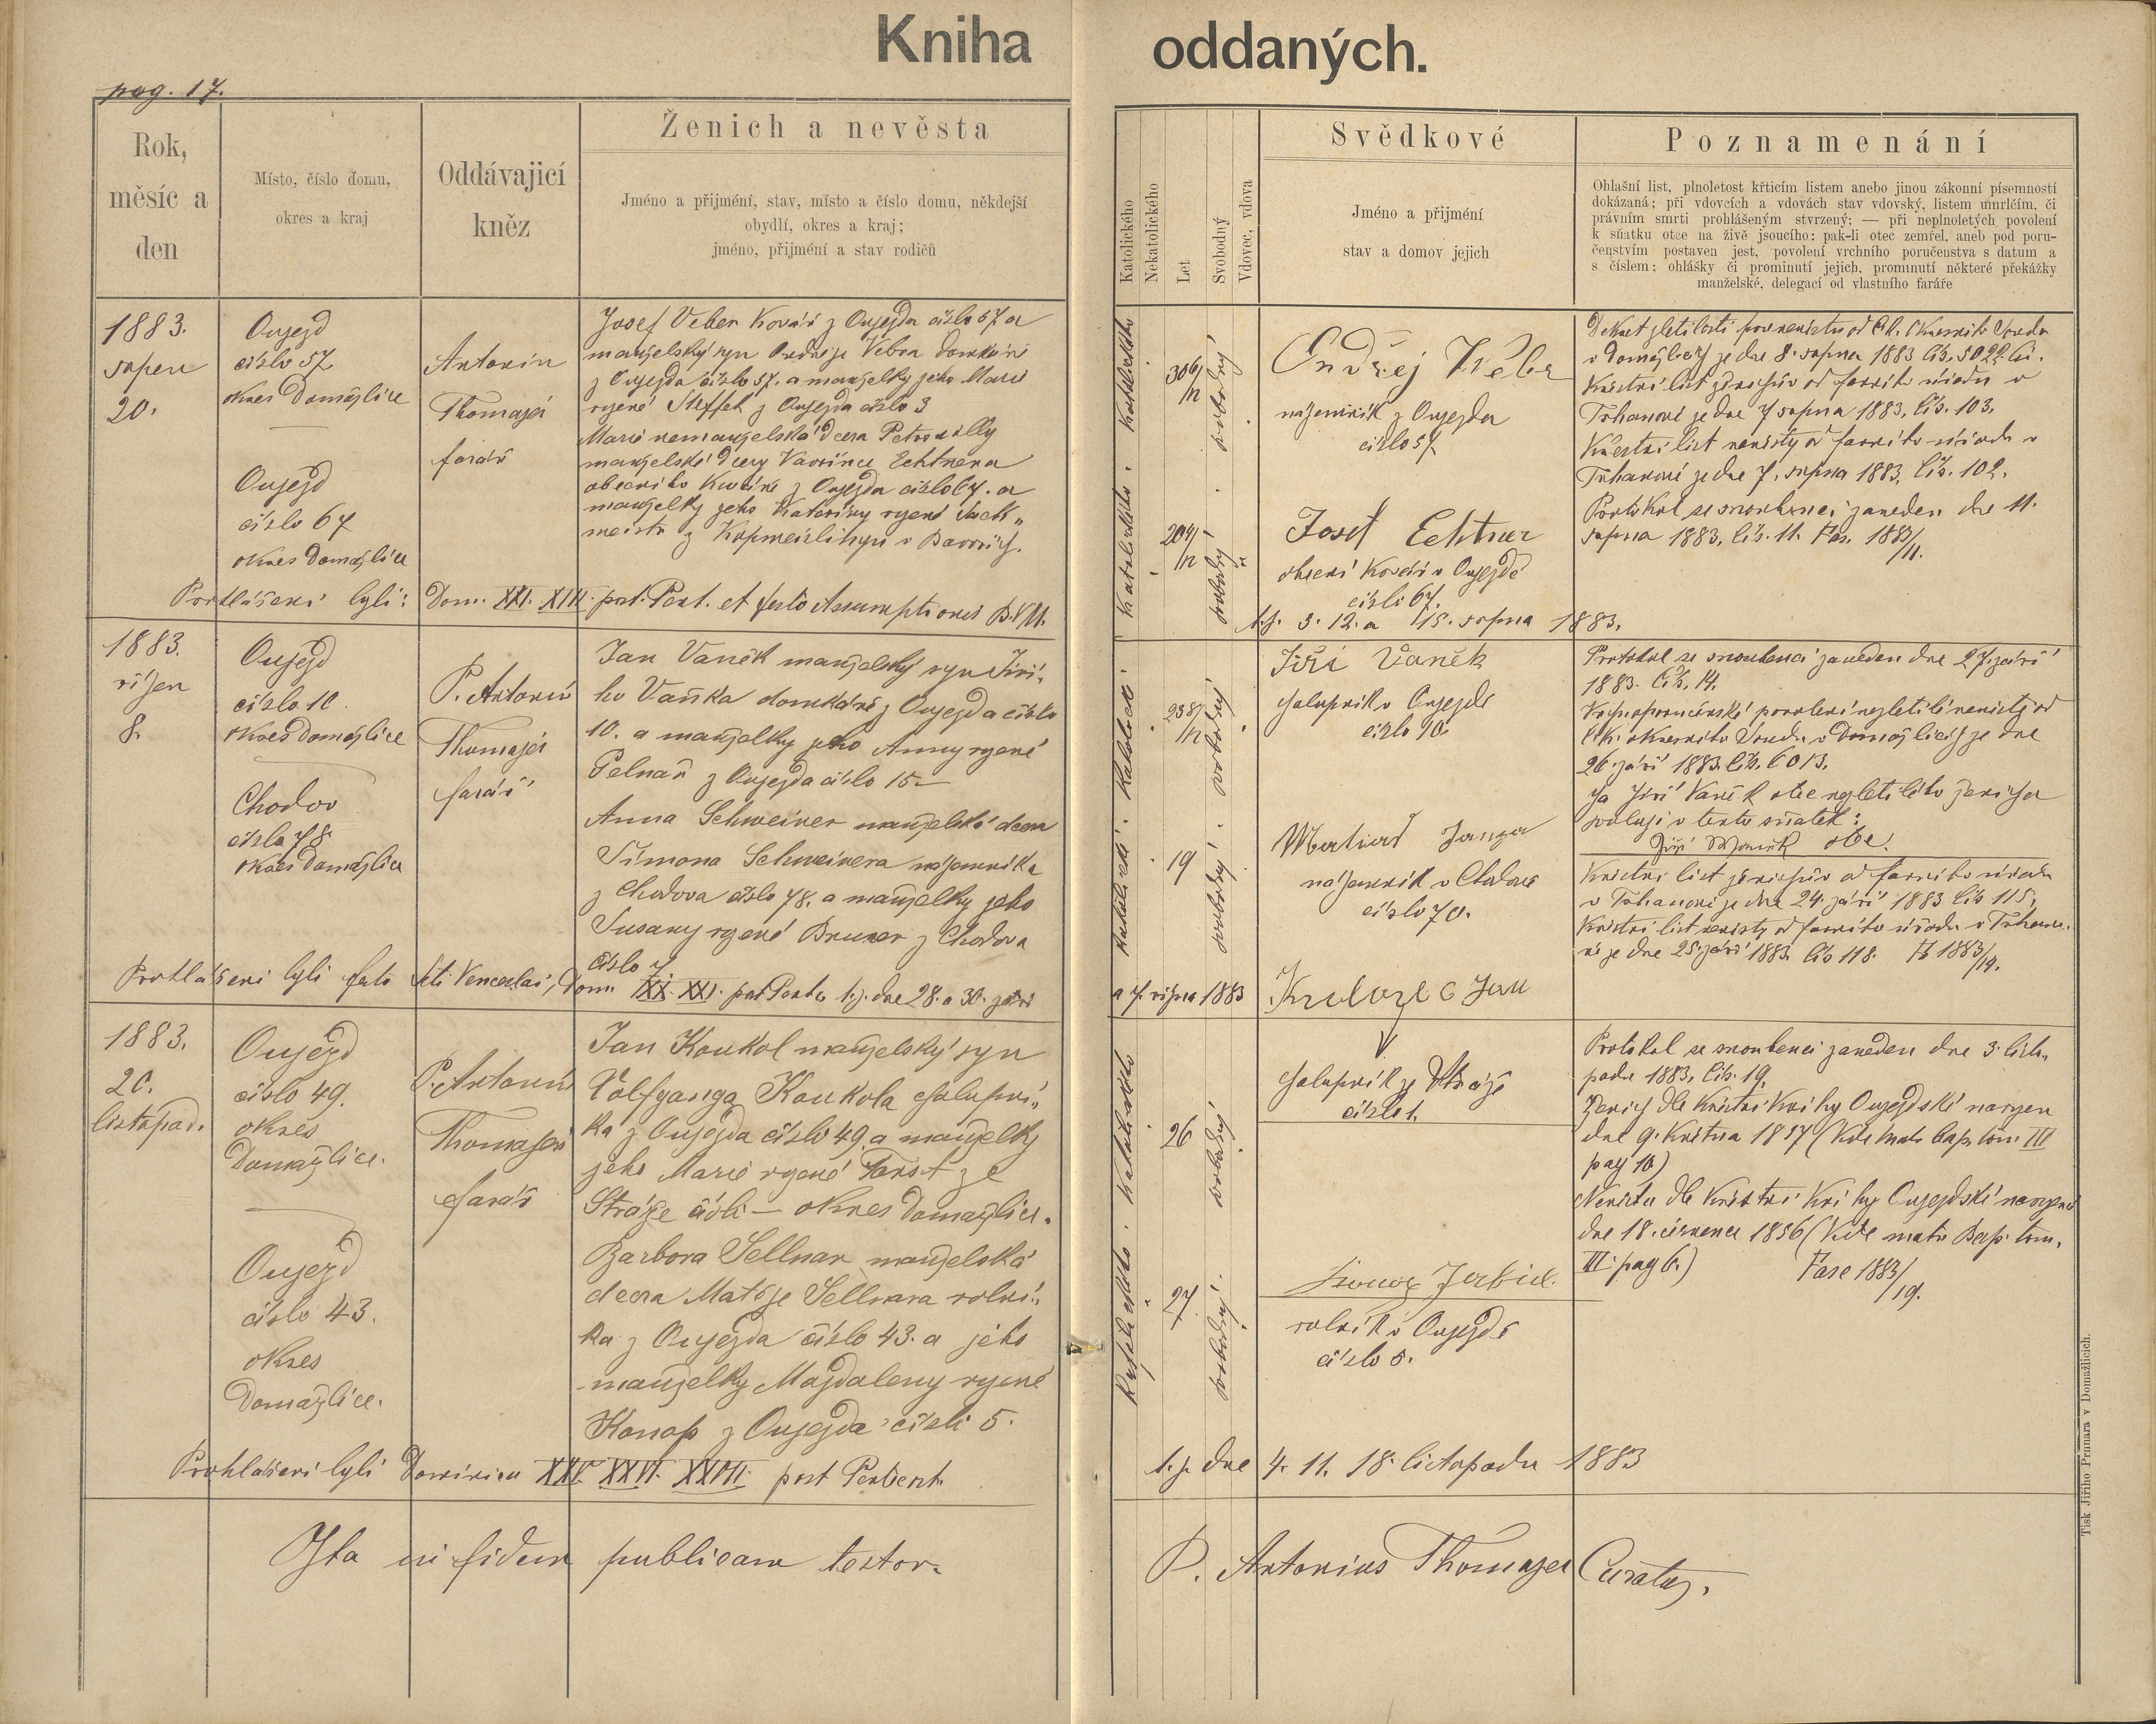 Kniha oddaných.
pag. 17.
Rok,
měsíc a
den
Místo, číslo domu,
okres a kraj
Oddávajicí
kněz
Ženich a nevěsta
Jméno a přijmění, stav, místo a číslo domu, někdejší
obydlí, okres a kraj;
jméno, přijmění a stav rodičů
Katolického
Nekatolického
Let
Svobodný
Vdovec, vdova
Svědkové
Jméno a přijmění
stav a domov jejich
Poznamenání
Ohlašní list, plnoletost křticím listem anebo jinou zákonní písemností
dokázaná; při vdovcích a vdovách stav vdovský, listem úmrlčím, či
právním smrti prohlášeným stvrzený; — při neplnoletých povolení
k sňatku otce na živě jsoucího: pak-li otec zemřel, aneb pod poru-
čenstvím postaven jest, povolení vrchního poručenstva s datum a
s číslem; ohlášky či prominutí jejich, prominutí některé překážky
manželské, delegací od vlastního faráře
1883.
srpen
20.
Oujezd
číslo 57
okres Domažlice
Oujezd
číslo 67
okres Domažlice
Antonín
Thomajer
farář
Josef Veber Kovář z Oujezda číslo 57 a
manželský syn Ondřeje Vebra domkáře
z Oujezda číslo 57. a manželky jeho Marie
rozené Steffel z Oujezda číslo 3
Marie nemanželská dcera Petronilly
manželské dcery Vavřince Echtnera
obecního Kováře z Oujezda číslo 67. a
manželky jeho Kateřiny rozené
z v Bavořích.
Katolického
Katolického
306/12
204/12
svobodný
svobodný
Ondřej Wéber
nájemník z Oujezda
číslo 57
Josef Echtner
obecní Kovář v Oujezdě
číslo 67.
Dekret zletilosti pro nevěstu od C.k. Okresního Soudu
v Domažlicích ze dne 8. srpna 1883 čís. 5022 čí.
Křestní list ženichův od farního úřadu v
Trhanově ze dne 7 srpna 1883, čís. 103.
Křestní list nevěsty od farního úřadu v
Trhanově ze dne 7. srpna 1883, čís. 102.
Protokol se snoubenci zaveden dne 11.
srpna 1883, čís. 11. Fas. 1883/11.
Prohlášeni byli: Dom. XII. XIII. post. Pent. et festo Assumptionis B.V.M. t.j. 5. 12. a 15. srpna 1883.
1883.
říjen
8.
Oujezd
číslo 10
okres Domažlice
Chodov
číslo 78
okres Domažlice
P. Antonín
Thomajer
farář
Jan Vaněk manželský syn Jiří-
ho Vaňka domkáře z Oujezda číslo
10. a manželky jeho Anny rozené
Pelnář z Oujezda číslo 15 —
Anna Schweiner manželská dcera
Šimona Schweinera nájemníka
z Chodova číslo 78. a manželky jeho
Susany rozené Bruner z Chodova
číslo 7
Katolické.
Katolické.
238/12
19
svobodný
svobodný
Jiří Vaněk
chalupník v Oujezdě
číslo 10.
Janza
nájemník v Chodově
číslo 70.
Protokol se snoubenci zaveden dne 27. září
1883. čís. 14.
Vrchnoporučenské povolení nezletilé nevěstě od
C.k. okresního Soudu v Domažlicích ze dne
26. září 1883. čís. 6013.
Já Jiří Vaněk otec nezletilého ženicha
svoluji v tento sňatek:
Jiří Waněk otec.
Křestní list ženichův od farního úřadu
v Trhanově ze dne 24. září 1883 čís. 115,
Křestní list nevěsty od farního úřadu v Trhano-
vě ze dne 25 září 1883 čís 118. F 1883/14.
Prohlášeni byli festo Scti Venceslai, Dom. XX. XXI. post Pent. t.j. dne 28. a 30. září a 7. října 1883
1883.
20.
listopad.
Oujezd
číslo 49.
okres
Domažlice.
Oujezd
číslo 43.
okres
Domažlice.
P. Antonín
Thomajer
farář
Jan Koukol manželský syn
Volfganga Koukola chalupní-
ka z Oujezda číslo 49. a manželky
jeho Marie rozené Forst ze
Stráže číslo — okres Domažlice.
Barbora Sellnar manželská
dcera Matěje Sellnara rolní-
ka z Oujezda číslo 43. a jeho
manželky Magdaleny rozené
Konop z Oujezda číslo 5.
Katolického
Katolického
26
27
svobodný
svobodný
Jan
chalupník ze Stráže
číslo 1.
rolník v Oujezdě
číslo 5.
Protokol se snoubenci zaveden dne 3. listo-
padu 1883, čís. 19.
Ženich dle Křestní Knihy Oujezdské narozen
dne 9. Května 1857 (Vide matr. bap. tom. III
pag 10)
Nevěsta dle Křestní Knihy Oujezdské narozená
dne 18. července 1856 (Vide matr. Bap. tom.
III. pag 6.) Fasc 1883/19.
Prohlášeni byli Dominica XXV. XXVI. XXVII. post Pentecost. t. j. dne 4. 11. 18. listopadu 1883
Ita in fidem publicam testor. P. Antonius Thomajer Curatus.
Tisk Jiřího Prunara v Domažlicích.